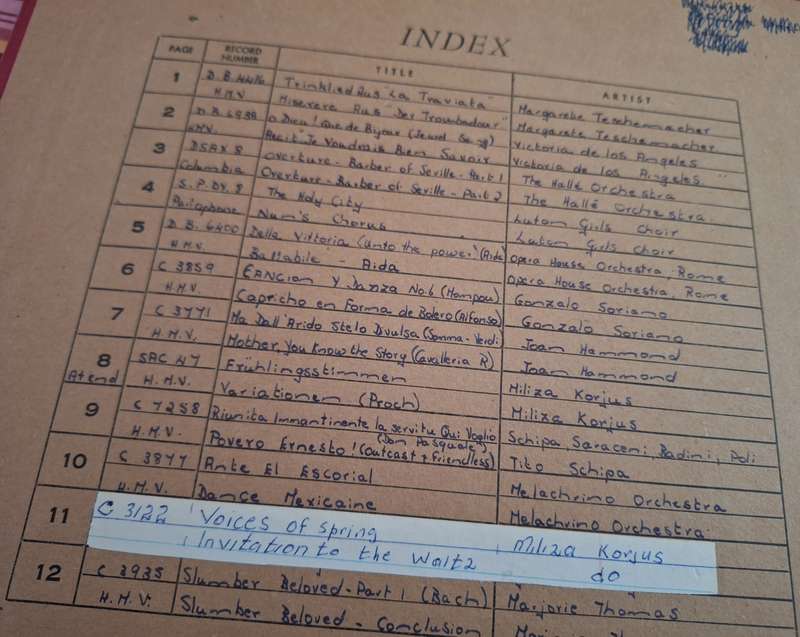 INDEX
PAGE RECORD NUMBER TITLE ARTIST
1 D.B. Trinklied Aus "La Traviata" Margarete Teschemacher
H.M.V. Miserere Aus "Der Troubadour" Margarete Teschemacher
2 D.B. 6938 O Dieu! Que de Bijoux (Jewel Song) Victoria de los Angeles
H.M.V. Recit "Je Voudrais Bien Savoir Victoria de los Angeles
3 DSAX 8 Overture - Barber of Seville - Part 1 The Hallé Orchestra
Columbia Overture - Barber of Seville - Part 2 The Hallé Orchestra
4 S.P. The Holy City Luton Girls Choir
Parlophone Nun's Chorus Luton Girls Choir
5 D.B. 6400 Della Vittoria (unto the power) (Aida) Opera House Orchestra, Rome
H.M.V. Ballabile - Aida Opera House Orchestra, Rome
6 C 3859 Cancion y Danza No.6 (Mompou) Gonzalo Soriano
H.M.V. Capricho en Forma de Bolero (Alfonso) Gonzalo Soriano
7 C 3771 Ma Dall' Arido Stelo Divulsa (Somma-Verdi) Joan Hammond
H.M.V. Mother, You Know the Story (Cavalleria R) Joan Hammond
8 SAC 47 Frühlingsstimmen Miliza Korjus
At end H.M.V. Variationen (Proch) Miliza Korjus
9 C 7258 Riunita Immantinente la servitu Qui Voglio Schipa, Saraceni, Badini, Poli
(Don Pasquale)
H.M.V. Povero Ernesto! (Outcast & Friendless) Tito Schipa
10 C 3877 Ante El Escorial Melachrino Orchestra
H.M.V. Dance Mexicaine Melachrino Orchestra
11 C 3122 Voices of spring Miliza Korjus
Invitation to the Waltz do
12 C 3935 Slumber Beloved - Part 1 (Bach) Marjorie Thomas
H.M.V. Slumber Beloved - Conclusion